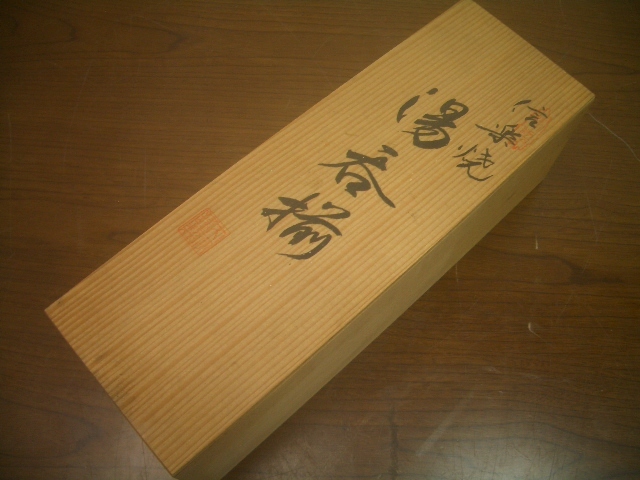 信楽焼
湯呑揃